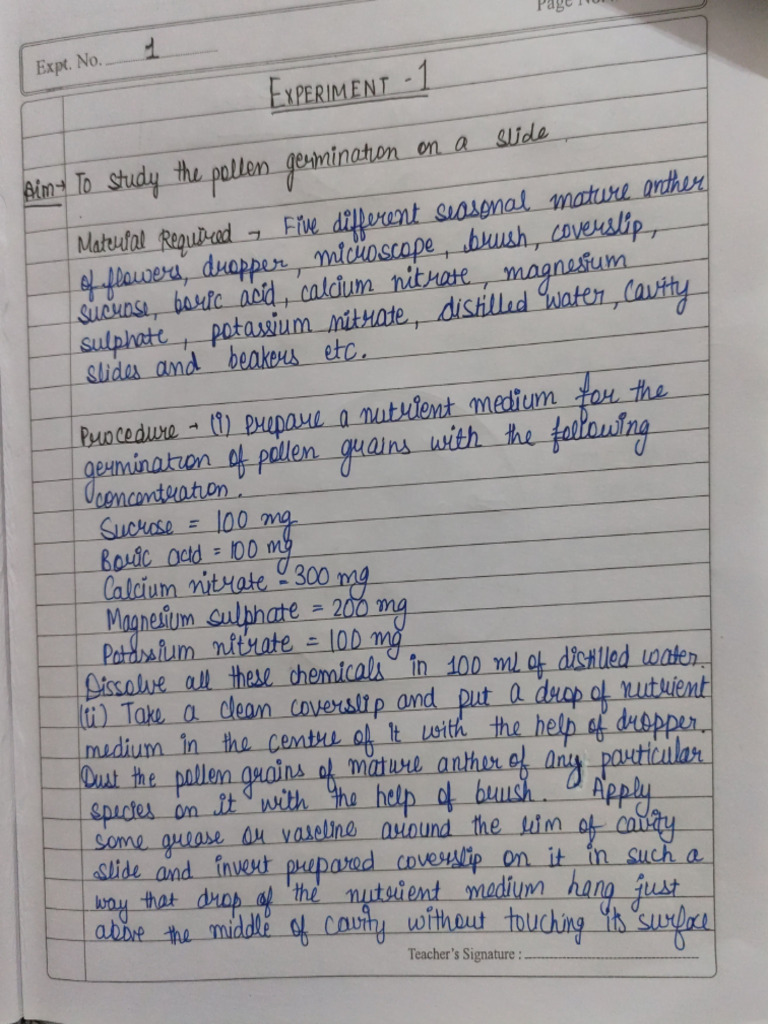 Page No.
Expt. No. 1
EXPERIMENT - 1
Aim → To study the pollen germination on a slide.
Material Required → Five different seasonal mature anther
of flowers, dropper, microscope, brush, coverslip,
sucrose, boric acid, calcium nitrate, magnesium
sulphate, potassium nitrate, distilled water, cavity
slides and beakers etc.
Procedure → (i) Prepare a nutrient medium for the
germination of pollen grains with the following
concentration.
Sucrose = 100 mg
Boric acid = 100 mg
Calcium nitrate = 300 mg
Magnesium sulphate = 200 mg
Potassium nitrate = 100 mg
Dissolve all these chemicals in 100 ml of distilled water.
(ii) Take a clean coverslip and put a drop of nutrient
medium in the centre of it with the help of dropper.
Dust the pollen grains of mature anther of any particular
species on it with the help of brush. Apply
some grease or vaseline around the rim of cavity
slide and invert prepared coverslip on it in such a
way that drop of the nutrient medium hang just
above the middle of cavity without touching its surface
Teacher's Signature :